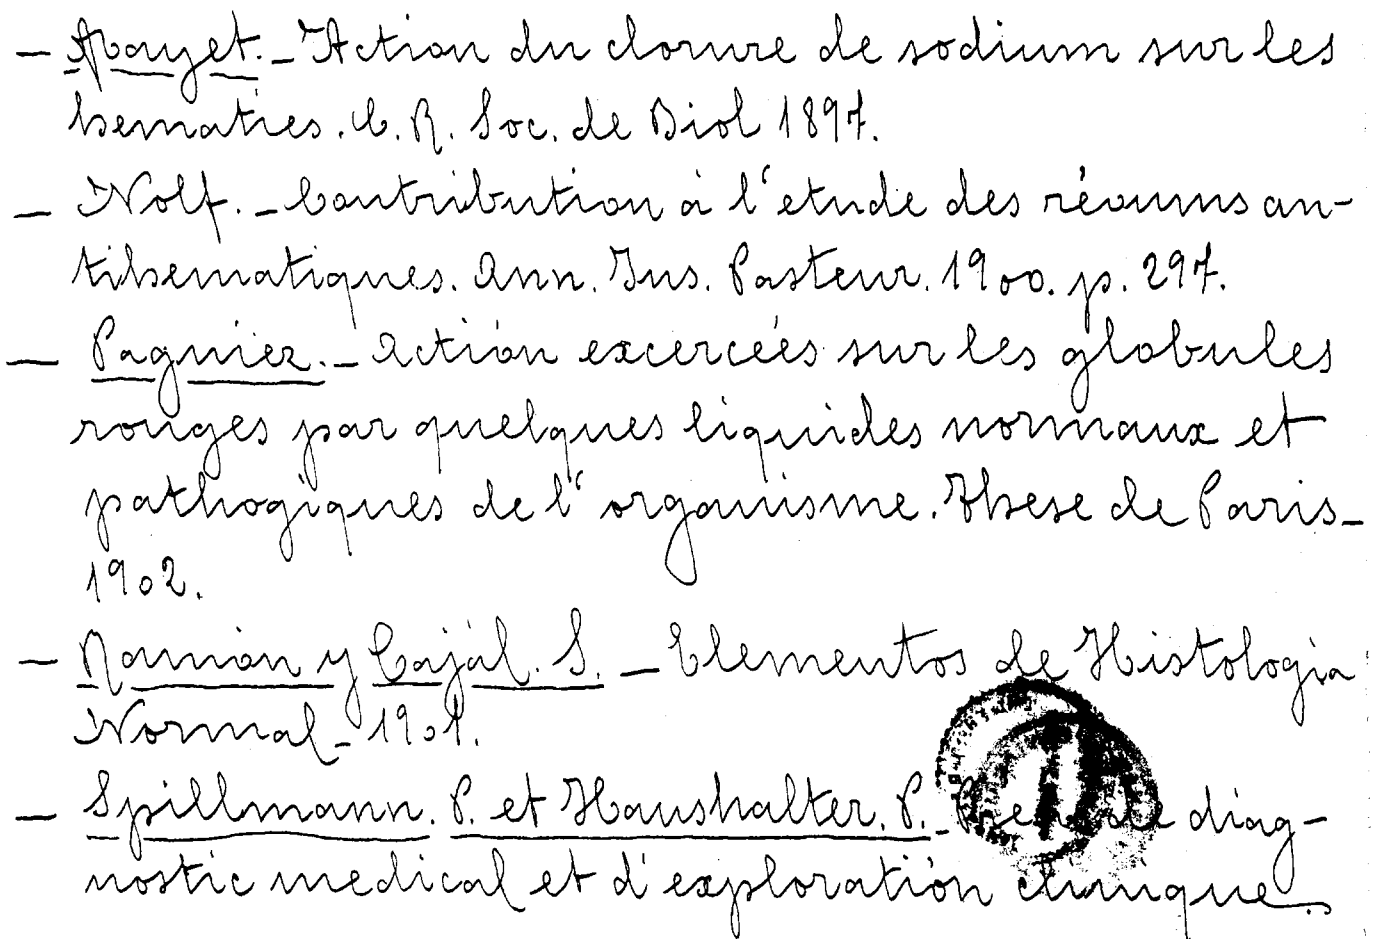 — Mayet. — Action du clorure de sodium sur les
hematies. C. R. Soc. de Biol 1897.
— Nolf. — Contribution à l'etude des réoums an-
tihematiques. Ann. Ins. Pasteur. 1900. p. 297.
— Pagniez. — Action excerceés sur les globules
rouges par quelques liquides normaux et
pathogiques de l'organisme. These de Paris —
1902.
— Ramón y Cajál. S. — Elementos de Histologia
Normal — 1901.
— Spillmann. P. et Haushalter. P. — diag-
nostic medical et d'exploratión clinique.